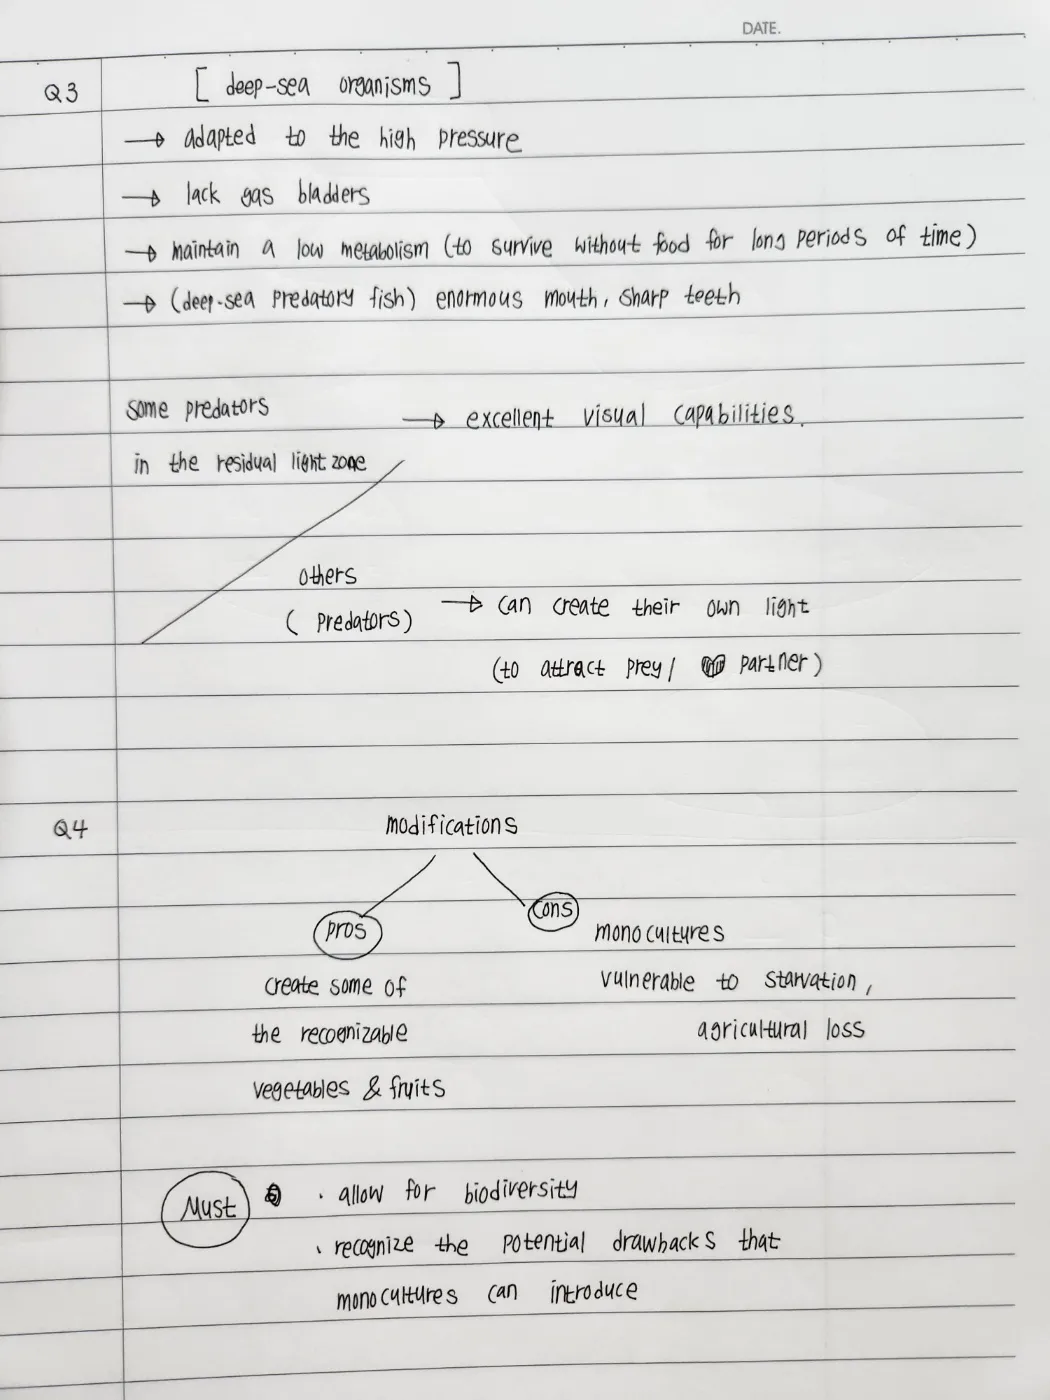 DATE.
Q3 [ deep-sea organisms ]
→ adapted to the high pressure
→ lack gas bladders
→ maintain a low metabolism (to survive without food for long periods of time)
→ (deep-sea predatory fish) enormous mouth, sharp teeth
some predators
in the residual light zone
→ excellent visual capabilities.
others
( predators)
→ can create their own light
(to attract prey / partner)
Q4 modifications
pros
create some of
the recognizable
vegetables & fruits
cons
monocultures
vulnerable to starvation,
agricultural loss
Must · allow for biodiversity
· recognize the potential drawbacks that
monocultures can introduce